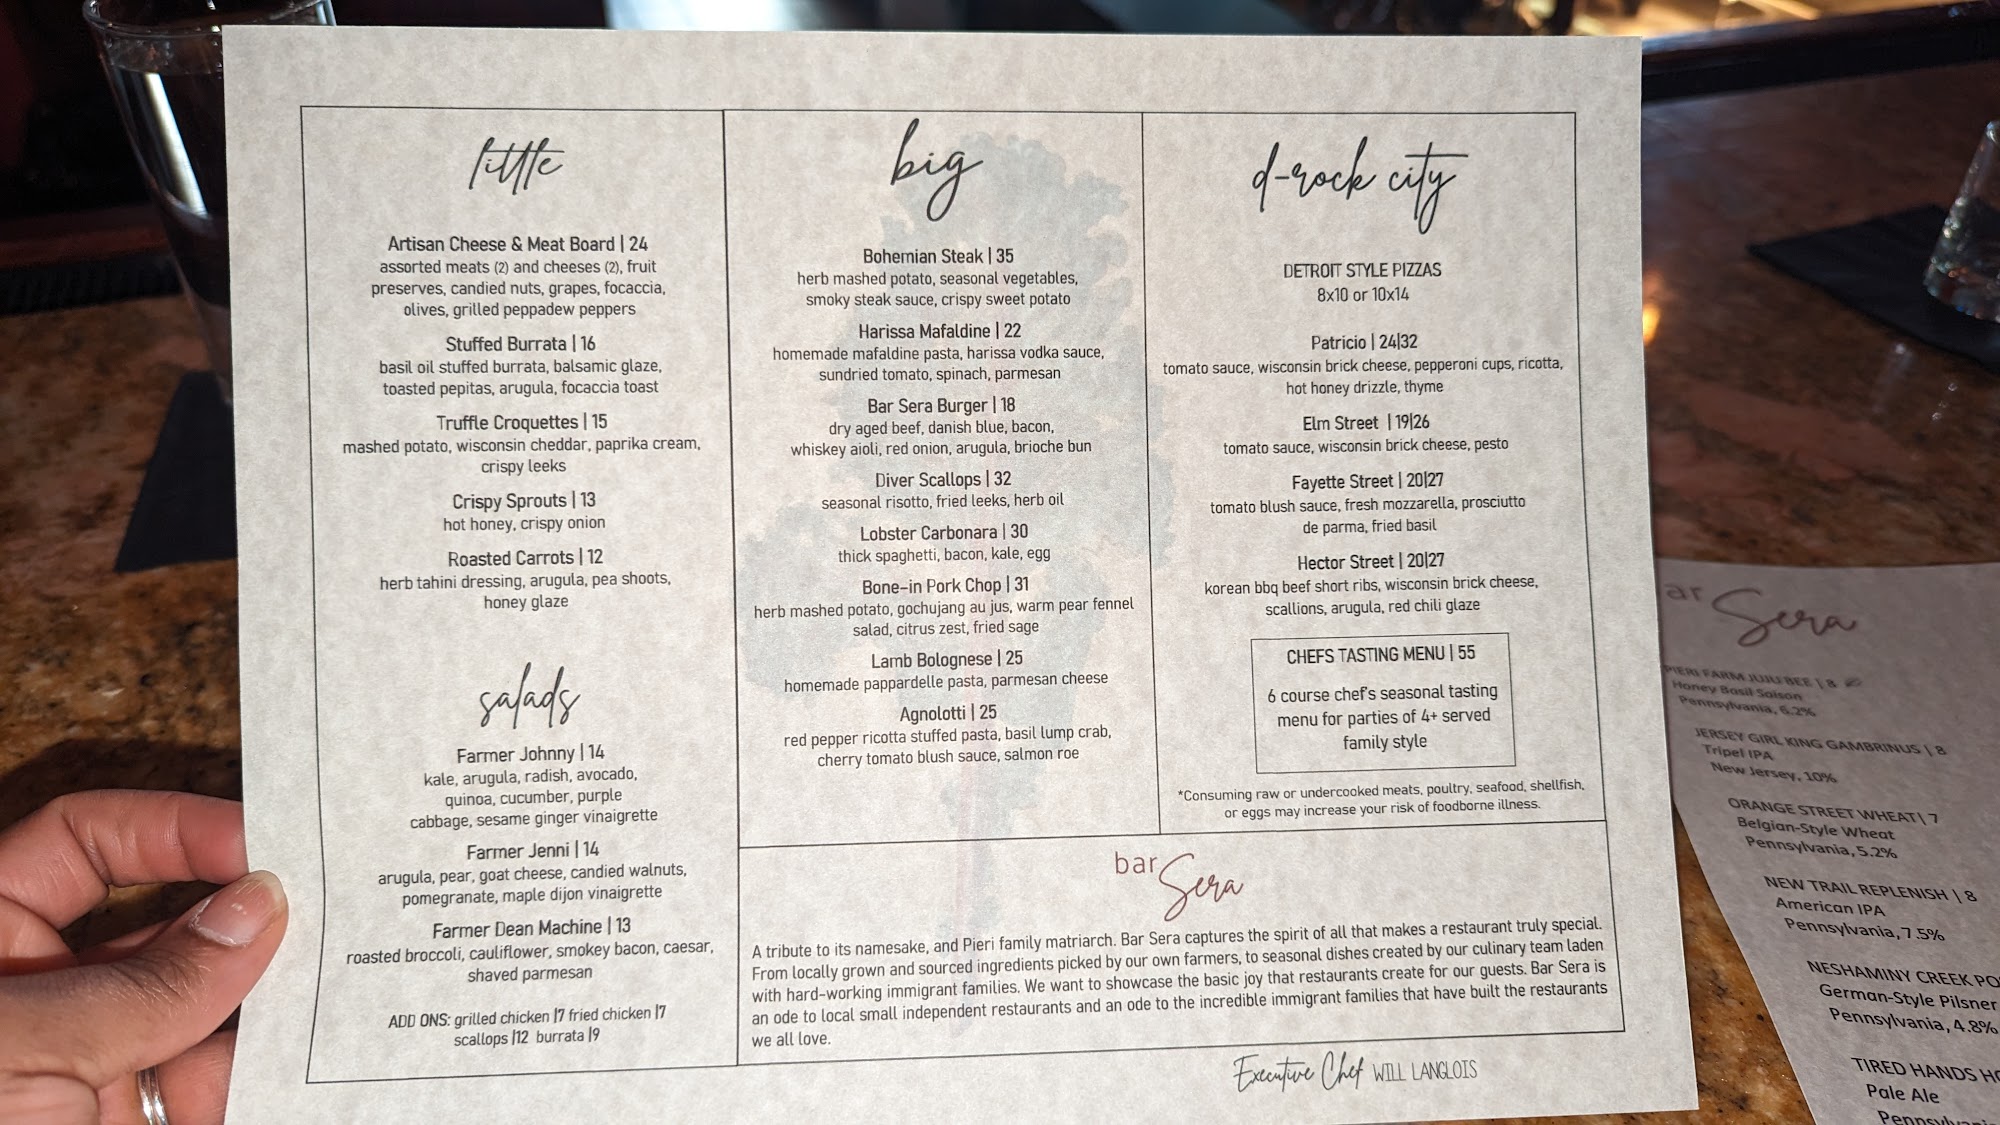 little
Artisan Cheese & Meat Board | 24
assorted meats (2) and cheeses (2), fruit
preserves, candied nuts, grapes, focaccia,
olives, grilled peppadew peppers
Stuffed Burrata | 16
basil oil stuffed burrata, balsamic glaze,
toasted pepitas, arugula, focaccia toast
Truffle Croquettes | 15
mashed potato, wisconsin cheddar, paprika cream,
crispy leeks
Crispy Sprouts | 13
hot honey, crispy onion
Roasted Carrots | 12
herb tahini dressing, arugula, pea shoots,
honey glaze
salads
Farmer Johnny | 14
kale, arugula, radish, avocado,
quinoa, cucumber, purple
cabbage, sesame ginger vinaigrette
Farmer Jenni | 14
arugula, pear, goat cheese, candied walnuts,
pomegranate, maple dijon vinaigrette
Farmer Dean Machine | 13
roasted broccoli, cauliflower, smokey bacon, caesar,
shaved parmesan
ADD ONS: grilled chicken |7 fried chicken |7
scallops |12 burrata |9
big
Bohemian Steak | 35
herb mashed potato, seasonal vegetables,
smoky steak sauce, crispy sweet potato
Harissa Mafaldine | 22
homemade mafaldine pasta, harissa vodka sauce,
sundried tomato, spinach, parmesan
Bar Sera Burger | 18
dry aged beef, danish blue, bacon,
whiskey aioli, red onion, arugula, brioche bun
Diver Scallops | 32
seasonal risotto, fried leeks, herb oil
Lobster Carbonara | 30
thick spaghetti, bacon, kale, egg
Bone-in Pork Chop | 31
herb mashed potato, gochujang au jus, warm pear fennel
salad, citrus zest, fried sage
Lamb Bolognese | 25
homemade pappardelle pasta, parmesan cheese
Agnolotti | 25
red pepper ricotta stuffed pasta, basil lump crab,
cherry tomato blush sauce, salmon roe
d-rock city
DETROIT STYLE PIZZAS
8x10 or 10x14
Patricio | 24|32
tomato sauce, wisconsin brick cheese, pepperoni cups, ricotta,
hot honey drizzle, thyme
Elm Street | 19|26
tomato sauce, wisconsin brick cheese, pesto
Fayette Street | 20|27
tomato blush sauce, fresh mozzarella, prosciutto
de parma, fried basil
Hector Street | 20|27
korean bbq beef short ribs, wisconsin brick cheese,
scallions, arugula, red chili glaze
CHEFS TASTING MENU | 55
6 course chef's seasonal tasting
menu for parties of 4+ served
family style
*Consuming raw or undercooked meats, poultry, seafood, shellfish,
or eggs may increase your risk of foodborne illness.
bar Sera
A tribute to its namesake, and Pieri family matriarch. Bar Sera captures the spirit of all that makes a restaurant truly special.
From locally grown and sourced ingredients picked by our own farmers, to seasonal dishes created by our culinary team laden
with hard-working immigrant families. We want to showcase the basic joy that restaurants create for our guests. Bar Sera is
an ode to local small independent restaurants and an ode to the incredible immigrant families that have built the restaurants
we all love.
Executive Chef WILL LANGLOIS
ar Sera
PIERI FARM JUJU BEE | 8
Honey Basil Saison
Pennsylvania, 6.2%
JERSEY GIRL KING GAMBRINUS | 8
Tripel IPA
New Jersey, 10%
ORANGE STREET WHEAT | 7
Belgian-Style Wheat
Pennsylvania, 5.2%
NEW TRAIL REPLENISH | 8
American IPA
Pennsylvania, 7.5%
NESHAMINY CREEK PO
German-Style Pilsner
Pennsylvania, 4.8%
TIRED HANDS HO
Pale Ale
Pennsylv